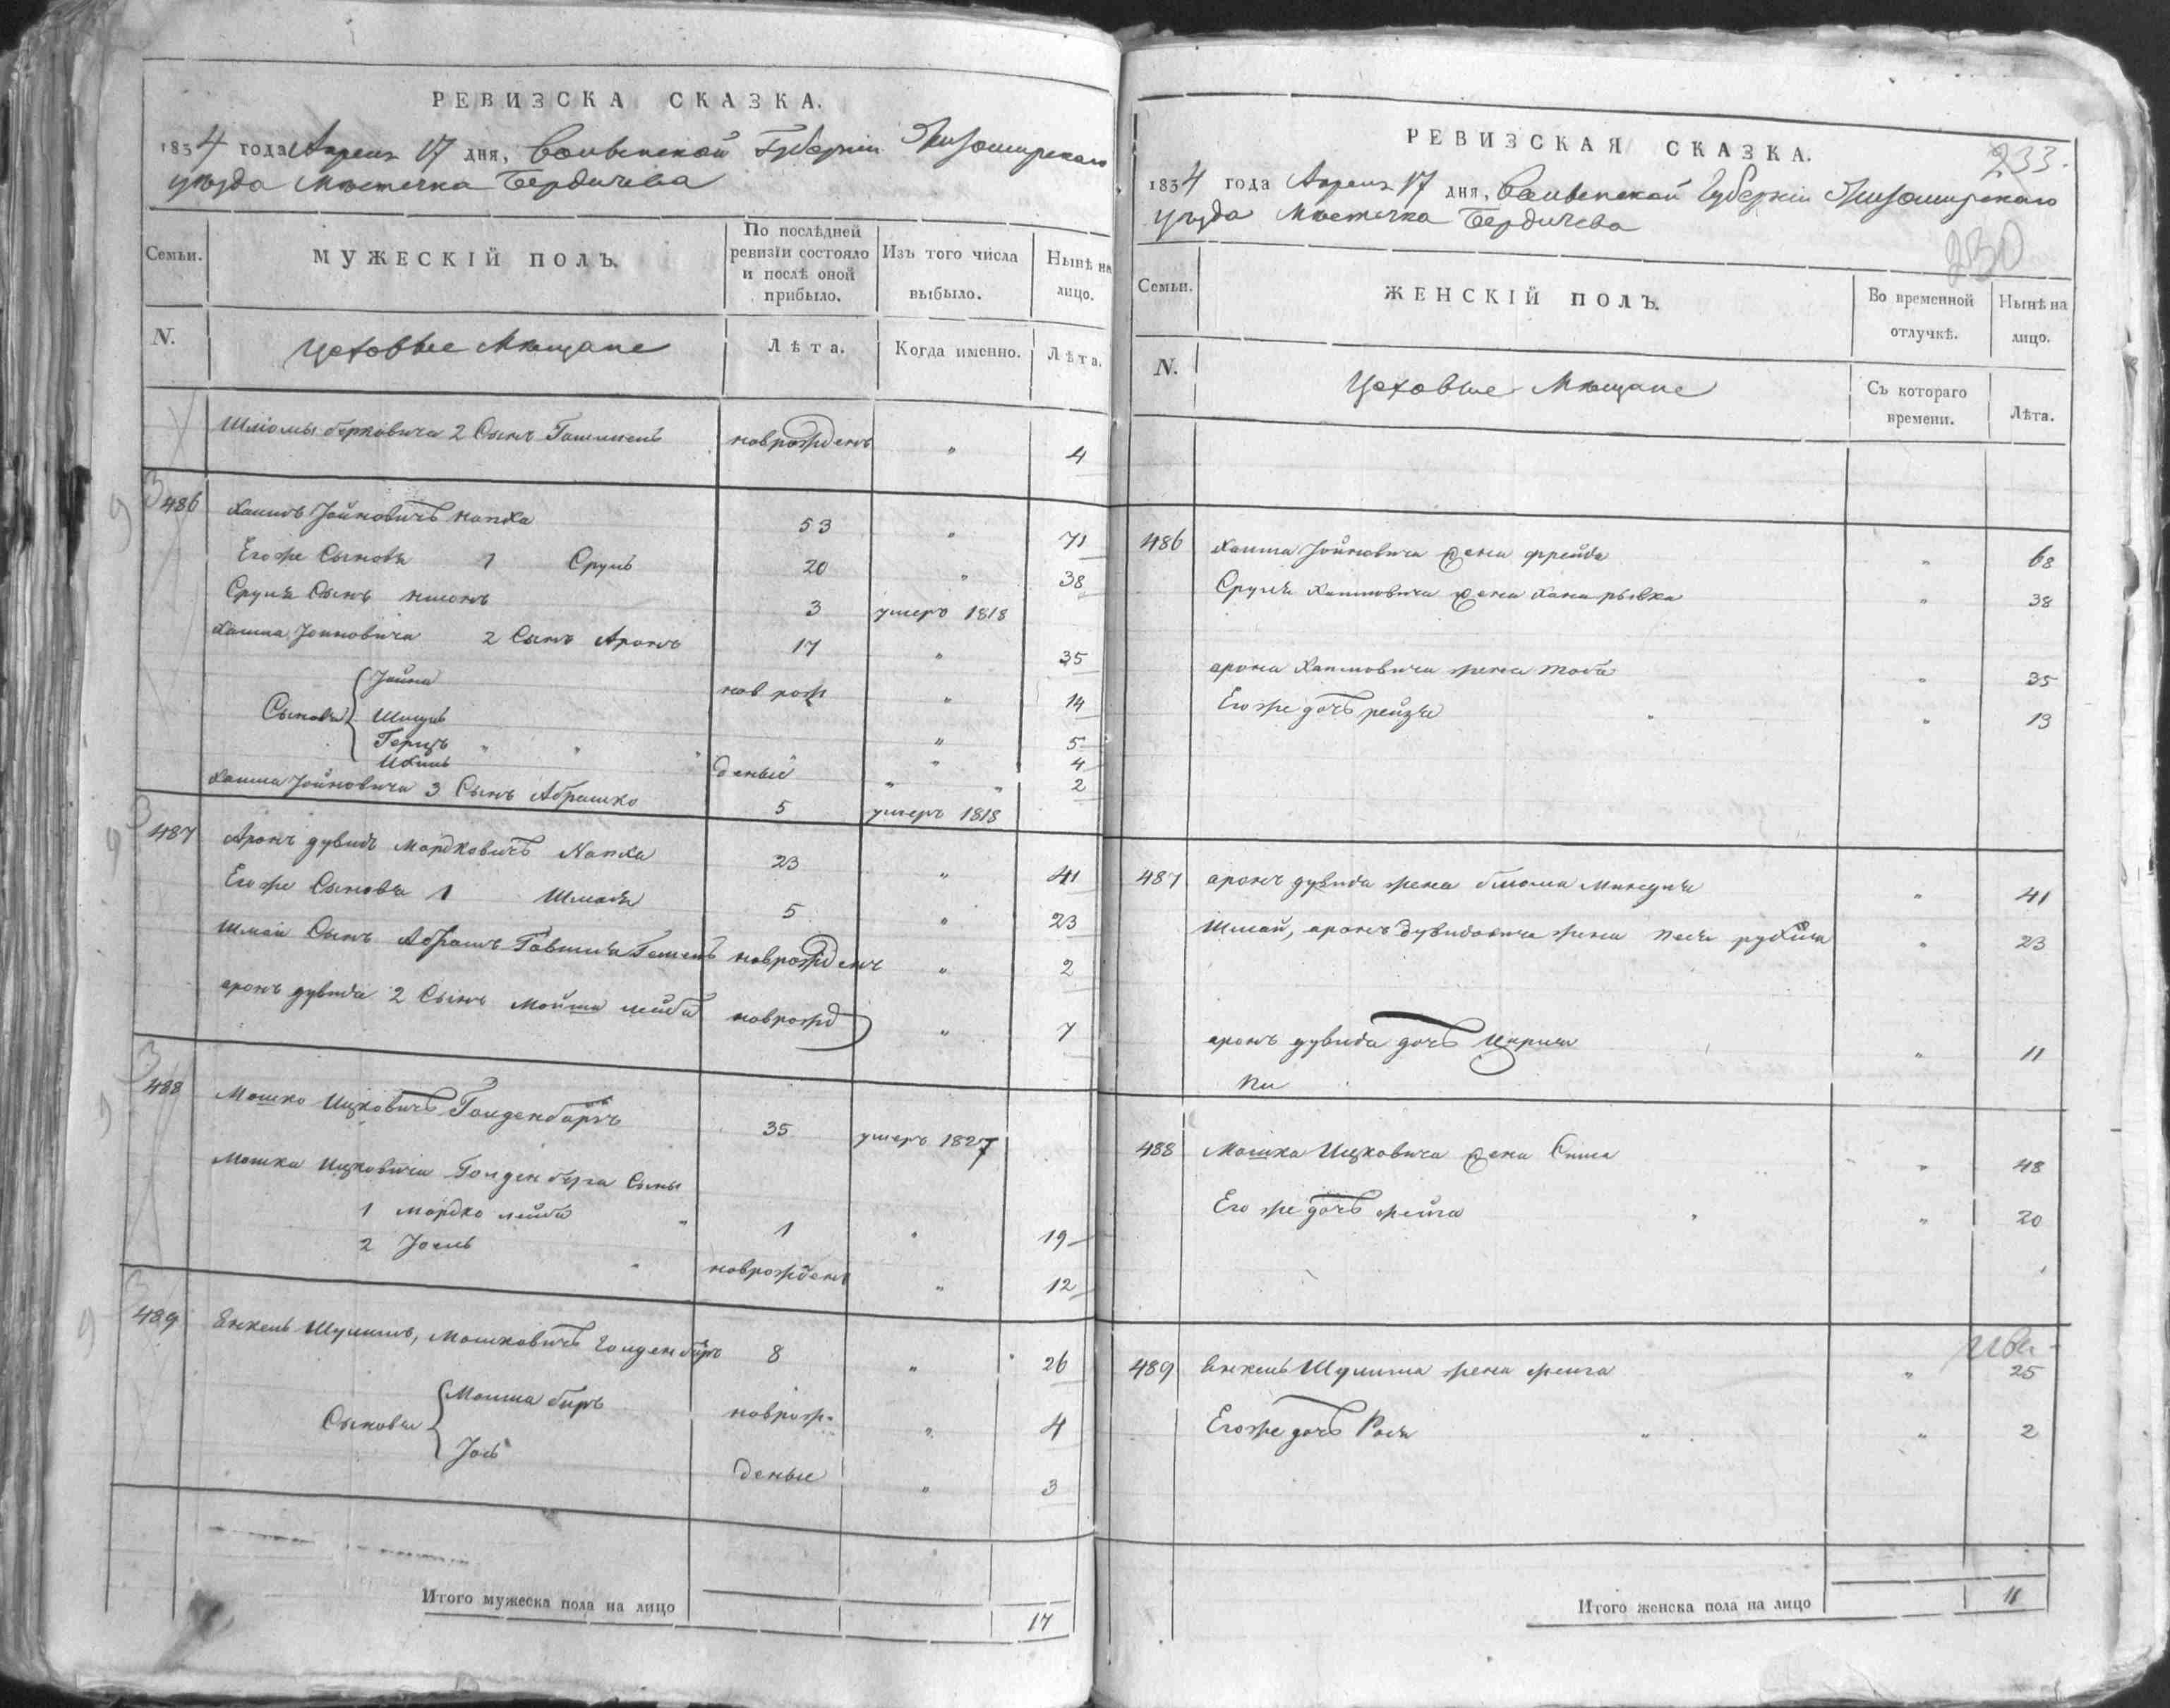 РЕВИЗСКА СКАЗКА.
1834 года Апреля 17 дня, Волынской Губернии Житомирского
уезда Местечка Бердичева
Семьи.
МУЖЕСКІЙ ПОЛЪ.
По послѣдней ревизіи состояло и послѣ оной прибыло.
Изъ того числа выбыло.
Нынѣ на лицо.
N.
Цеховые Мещане
Лѣта.
Когда именно.
Лѣта.
Шліомы Берковича 2 Сынъ новорожденъ " 4
486 Хаимъ Іойновичъ Капха 53 " 71
Его же Сыновья 1 Сруль 20 " 38
Сруля Сынъ 3 умеръ 1818
Хаима Іойновича 2 Сынъ Аронъ 17 " 35
Іойна нов рож " 14
Сыновья Шмуль " 5
Герцъ " " " 4
Ихиль деные " " 2
Хаима Іойновича 3 Сынъ Абрашко 5 умеръ 1818
487 Аронъ дувидъ Мордковичъ Капха 23 " 41
Его же Сыновья 1 Шмая 5 " 23
Шмаи Сынъ Абрамъ новорожденъ " 2
аронъ дувида 2 Сынъ Мойша лейба новорожд " 7
488 Мошко Ицковичъ Голденбергъ 35 умеръ 1827
Мошка Ицковича Голденберга Сыны
1 Мордко лейба " 1 " 19
2 Іосль " новорожденъ " 12
489 Янкель Шулимъ, Мошковичъ Голденберъ 8 " 26
Сыновья Мойша беръ новрож. " 4
Іось деные " 3
Итого мужеска пола на лицо 17
РЕВИЗСКАЯ СКАЗКА.
233.
1834 года Апреля 17 дня, Волынской Губернии Житомирского
уезда Местечка Бердичева
230
Семьи.
ЖЕНСКІЙ ПОЛЪ.
Во временной отлучкѣ.
Нынѣ на лицо.
N.
Цеховые Мещане
Съ котораго времени.
Лѣта.
486 Хаима Іойновича жена фрейда " 68
Сруля Хаимовича жена Хана рывка " 38
арона Хаимовича жена Тоба " 35
Его же дочь рейзя " " 13
487 аронъ дувида жена блюма Миндля " 41
Шмаи, аронъ дувидовича жена Песя рухля " 23
аронъ дувида дочь " 11
488 Мошка Ицковича жена Сима " 48
Его же дочь фейга " " 20
489 Янкель Шулима жена фейга " 25
Его же дочь Рося " " 2
Итого женска пола на лицо 11